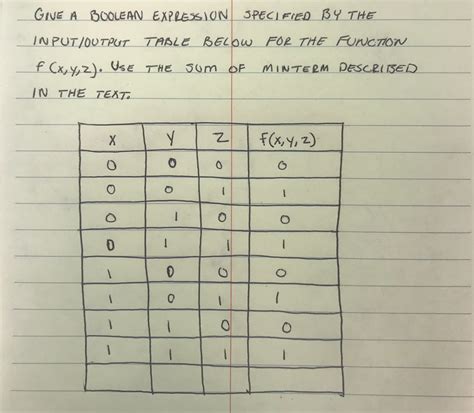 GIVE A BOOLEAN EXPRESSION SPECIFIED BY THE
INPUT/OUTPUT TABLE BELOW FOR THE FUNCTION
f(x,y,z). USE THE SUM OF MINTERM DESCRIBED
IN THE TEXT.
X Y Z f(x,y,z)
0 0 0 0
0 0 1 1
0 1 0 0
0 1 1 1
1 0 0 0
1 0 1 1
1 1 0 0
1 1 1 1